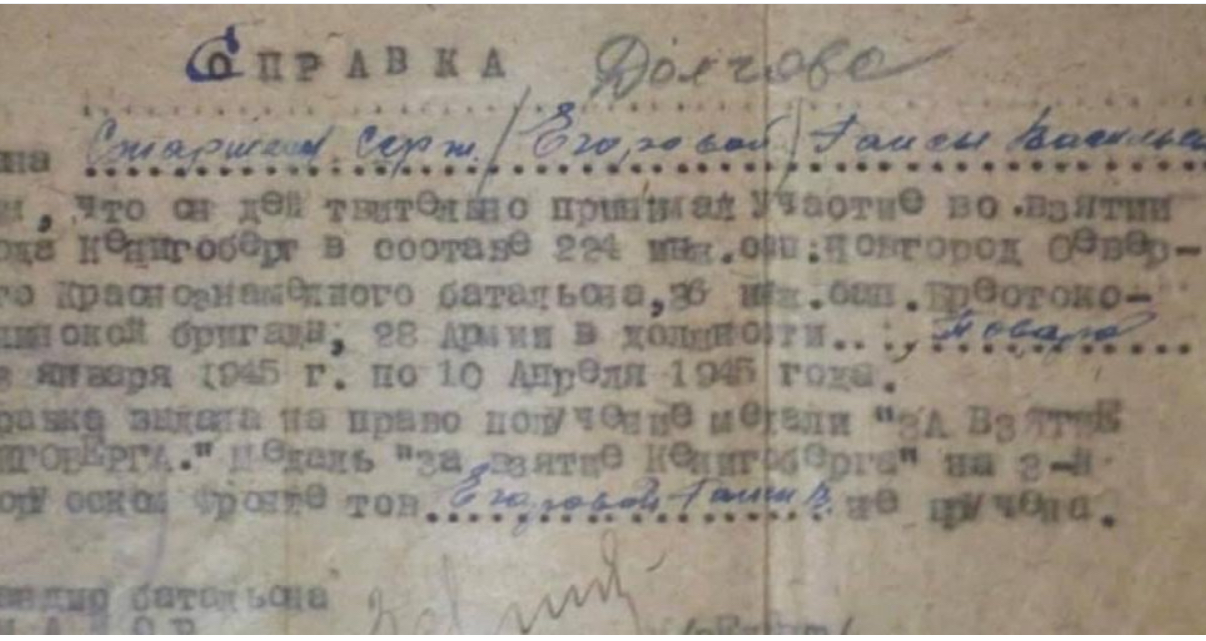 СПРАВКА Долгово
на Старшем Серж. / Егоровой / Таисы Василье
, что он дей твительно принимал участие во взятии
ода Кенигсберг в составе 224 инж.сап.Новгород Север-
го Краснознаменного батальона, 36 инж.сап.Брестско-
инской бригады, 28 Армии в должности..., повара
января 1945 г. по 10 Апреля 1945 года.
равка выдана на право получение медали "ЗА ВЗЯТИЕ
ИГСБЕРГА." Медаль "За взятие Кенигсберга" на 3-й
ском фронте тов. Егоровой Таисы В. не вручена.
батальона